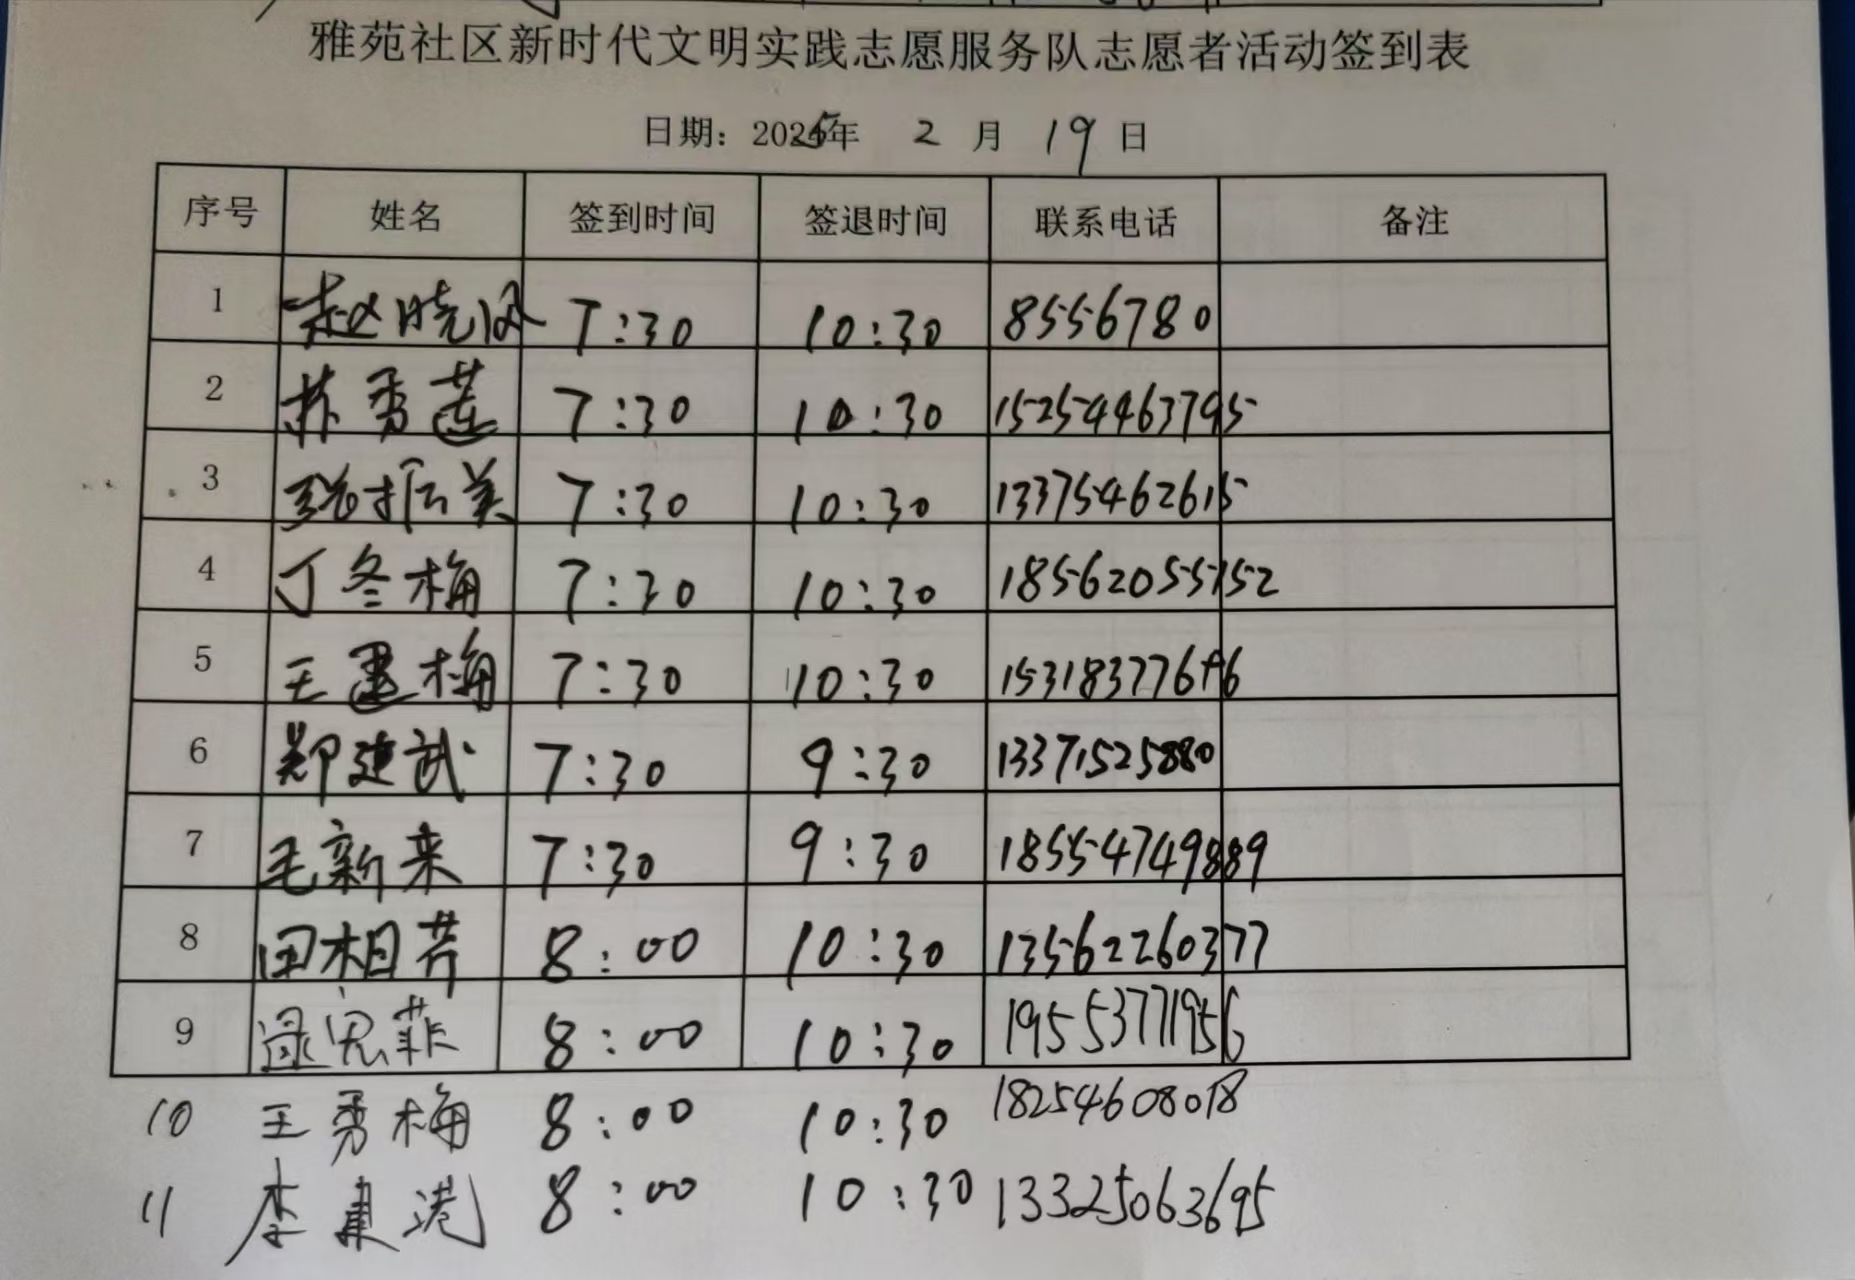 雅苑社区新时代文明实践志愿服务队志愿者活动签到表
日期：2025年 2 月 19 日
序号 姓名 签到时间 签退时间 联系电话 备注
1 赵晓凤 7:30 10:30 8556780
2 林秀莲 7:30 10:30 15254463795
3 振美 7:30 10:30 13375462615
4 丁冬梅 7:30 10:30 18562055752
5 王惠梅 7:30 10:30
6 郑建武 7:30 9:30 13371525880
7 毛新来 7:30 9:30 18554749889
8 田相芹 8:00 10:30 13562260377
9 逯思菲 8:00 10:30 19553771956
10 王秀梅 8:00 10:30 18254608018
11 李建港 8:00 10:30 13325063695